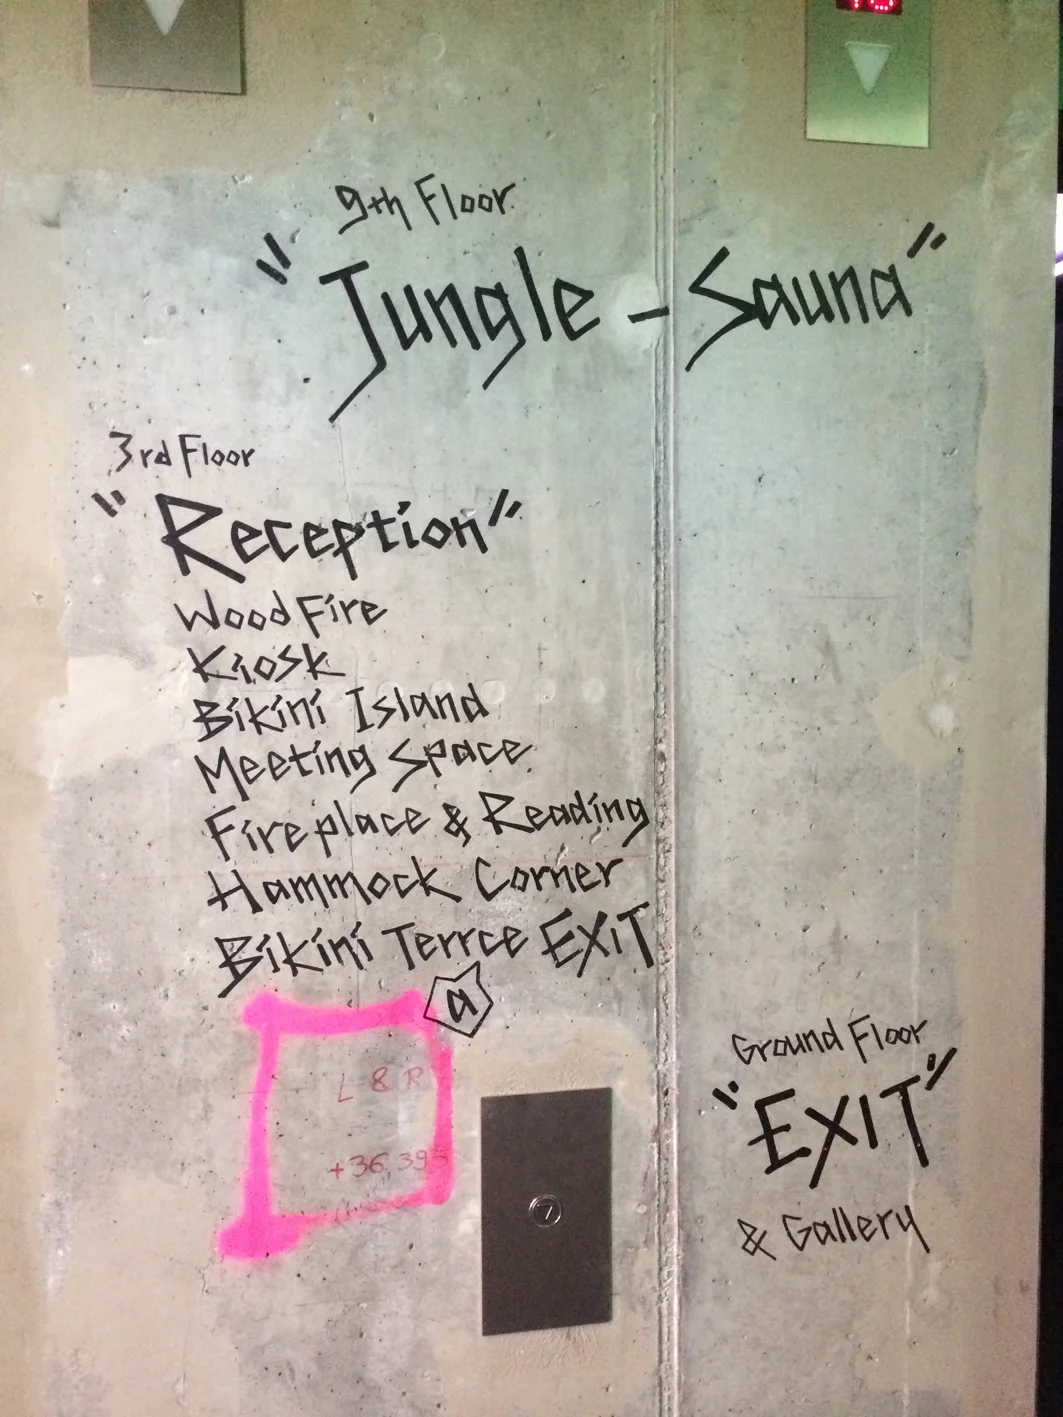 9th Floor
"Jungle-Sauna"
3rd Floor
"Reception"
Wood Fire
Kiosk
Bikini Island
Meeting Space
Fireplace & Reading
Hammock Corner
Bikini Terrce EXIT
a
L 8 R
+36,395
Ground Floor
"EXIT"
& Gallery